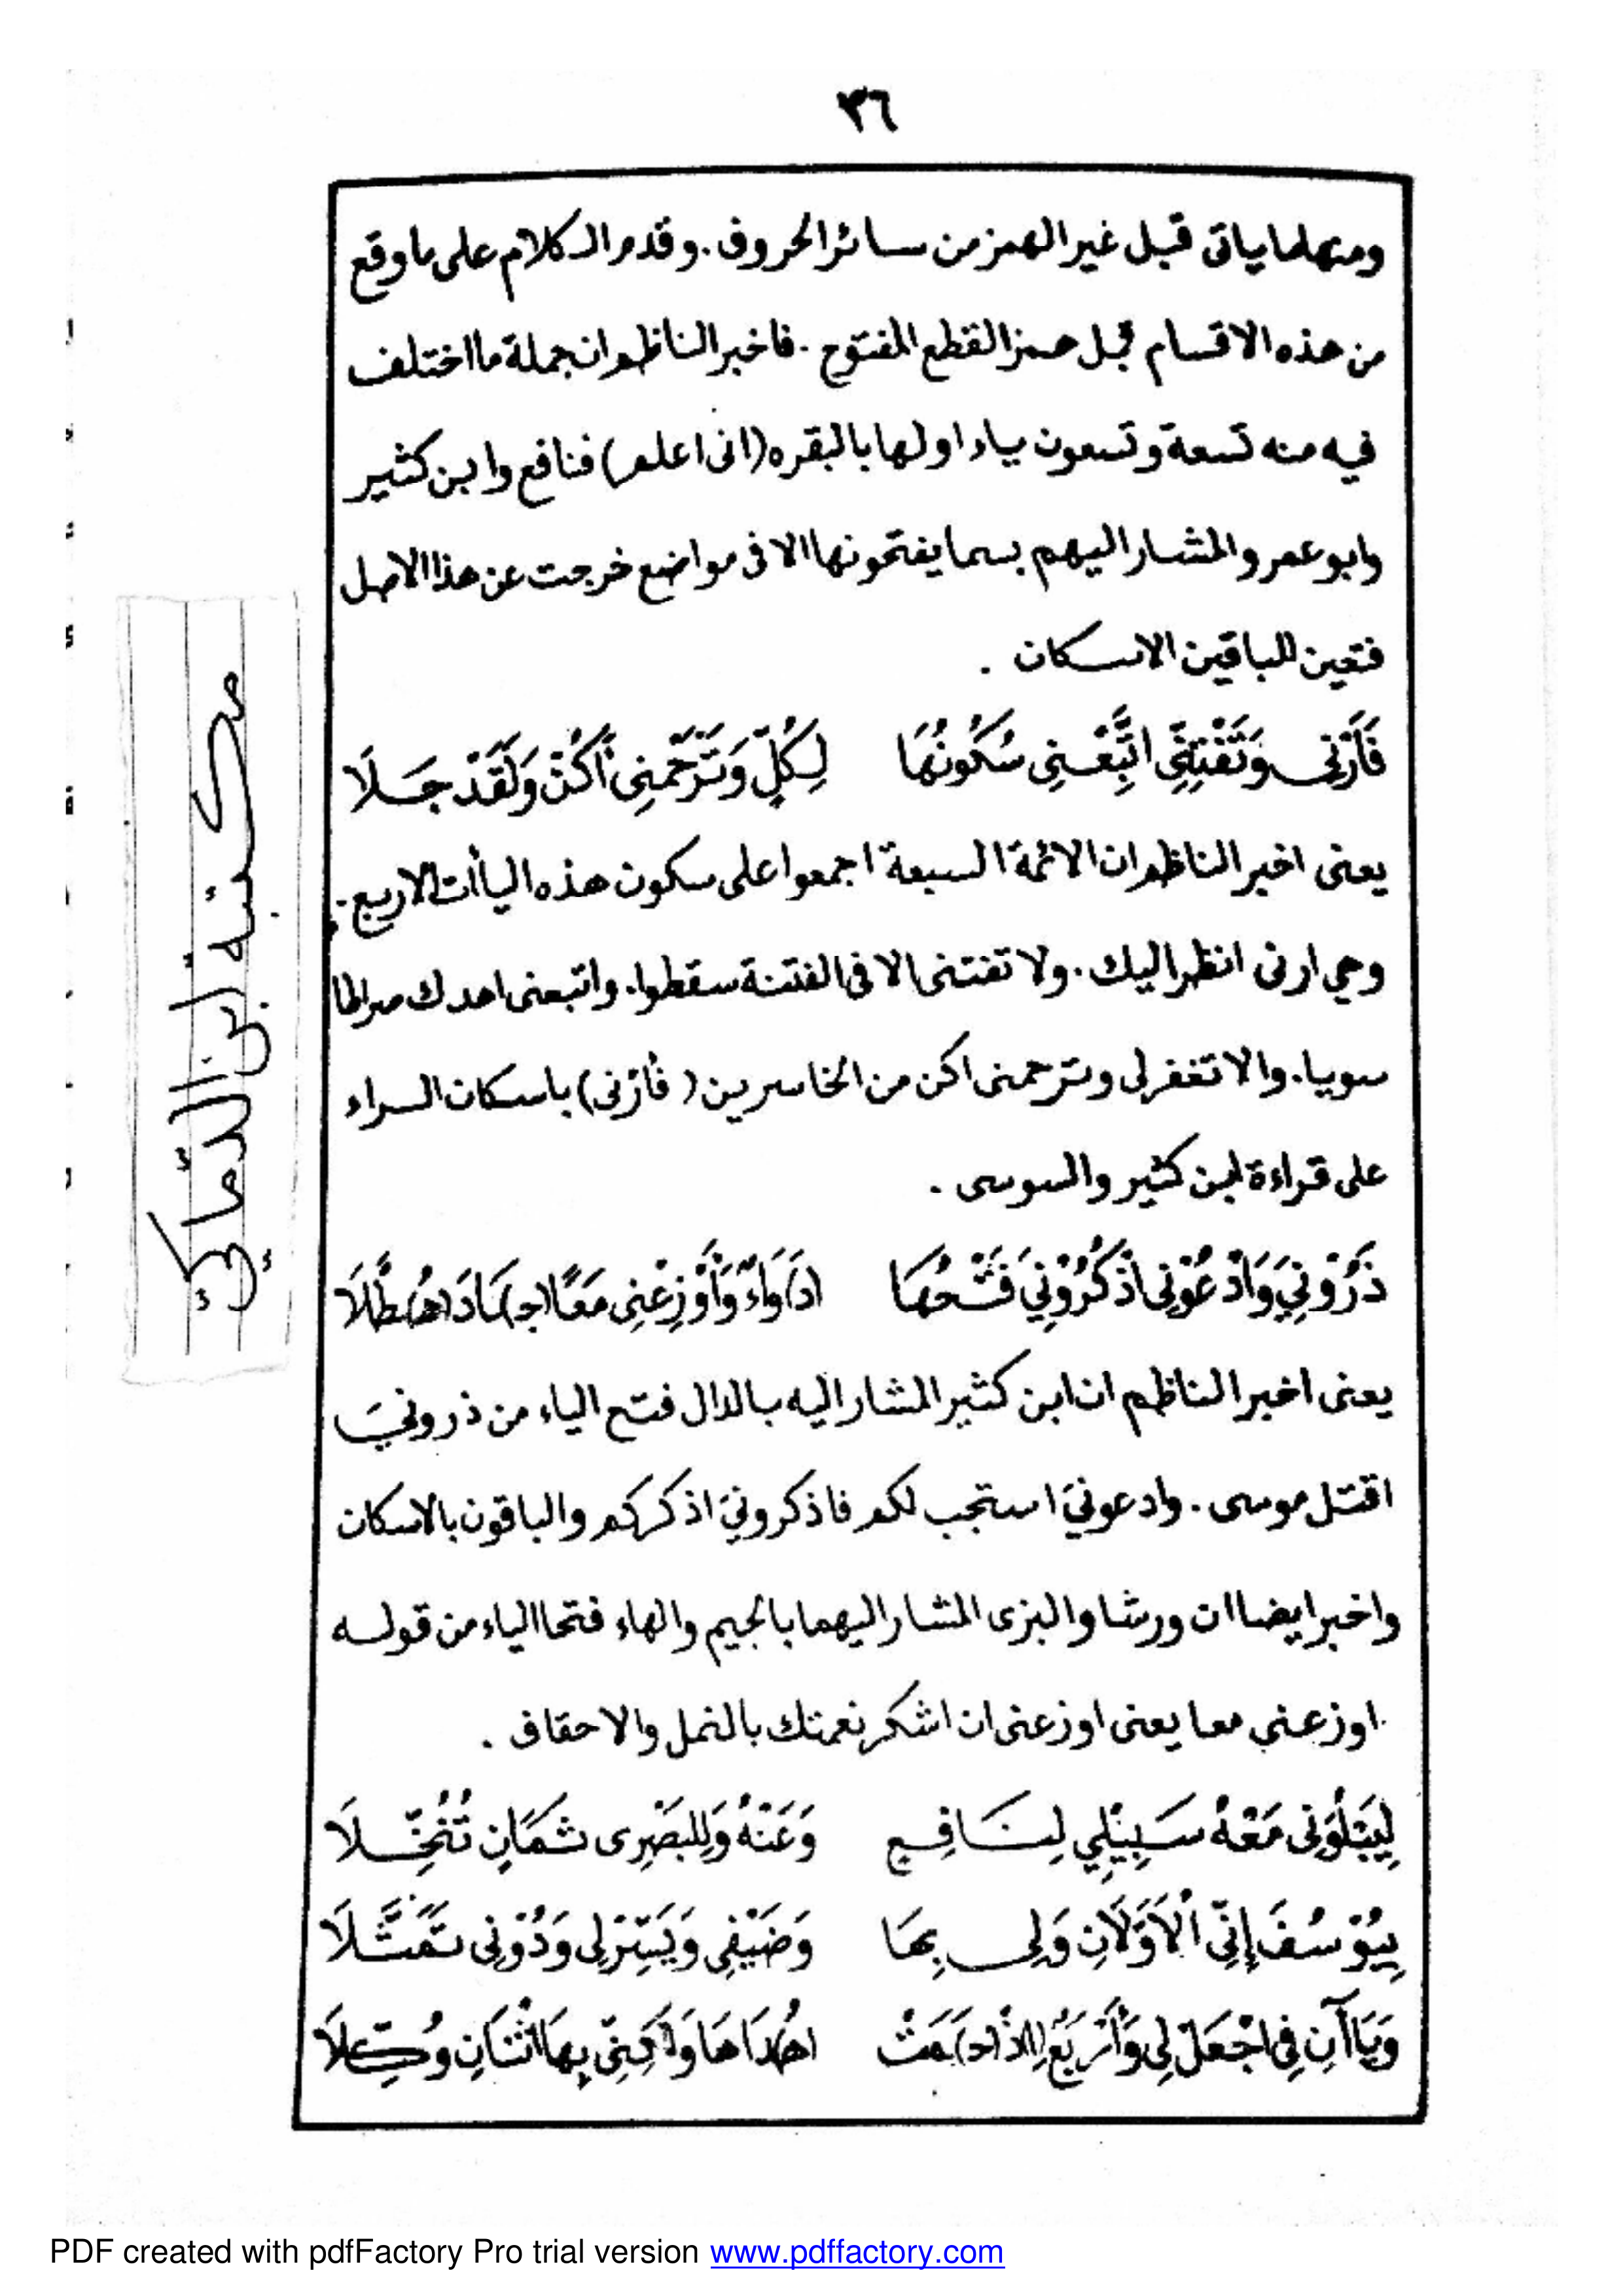 ٣٦
ومنها ما ياتى قبل غير الهمز من سائر الحروف . وقدم الكلام على ما وقع
من هذه الاقسام قبل همز القطع المفتوح . فاخبر الناظم ان جملة ما اختلف
فيه منه تسعة وتسعون ياء اولها بالبقره (انى اعلم) فنافع وابن كثير
وابو عمرو المشار اليهم بسما يفتحونها الا فى مواضع خرجت عن هذا الاصل
فتعين للباقين الاسكان .
فَأَرْنِى وَتَفْتِنِّى اتَّبِعْنِى سُكُونُهَا لِكُلٍّ وَتَرْحَمْنِى أَكُنْ وَلَقَدْ جَلَا
يعنى اخبر الناظم ان الائمة السبعة اجمعوا على سكون هذه اليأات الاربع .
وهي ارنى انظر اليك . ولا تفتنى الا فى الفتنة سقطوا . واتبعنى اهدك صراطا
سويا . والا تغفر لى وترحمنى اكن من الخاسرين ( فأرْنى) باسكان الراء
على قراءة ابن كثير والسوسى .
ذَرُوْنِيَ وَادْعُوْنِى اذْكُرُوْنِيَ فَتْحُهَا (دَ)وَاءٌ وَأَوْزِعْنِى مَعًا (جَـ)ـادَ (هُـ)ـطَّلَا
يعنى اخبر الناظم ان ابن كثير المشار اليه بالدال فتح الياء من ذرونيَ
اقتل موسى . وادعونيَ استجب لكم فاذكرونيَ اذكركم والباقون بالاسكان
واخبر ايضا ان ورشا والبزى المشار اليهما بالجيم والهاء فتحا الياء من قوله
اوزعنى معا يعنى اوزعنى ان اشكر نعمتك بالنمل والاحقاف .
لِيَبْلُوَنِى مَعْهُ سَبِيْلِي لِنَافِعٍ وَعَنْهُ وَلِلْبَصْرِى ثَمَانٍ تُنُخِّلَا
بِيُوْسُفَ إِنِّى الْأَوَّلَانِ وَلِى بِهَا وَضَيْفِى وَيَسِّرْلِى وَدُوْنِى تَمَثَّلَا
وَيَاآنِ فِى اجْعَلْ لِى وَأَرْبَعٌ (اِ)ذْ (حَـ)ـمَتْ (هُـ)ـدَاهَا وَلَكِنِّى بِهَا اثْنَانِ وُكِّلَا
مكتبة ابن الدماكي
PDF created with pdfFactory Pro trial version www.pdffactory.com